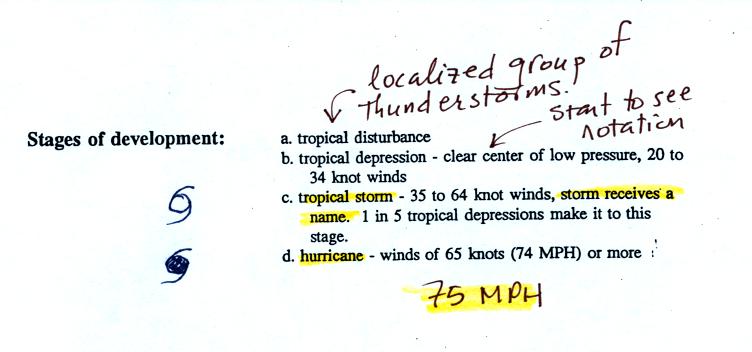 localized group of
thunderstorms.
start to see
notation
Stages of development:
a. tropical disturbance
b. tropical depression - clear center of low pressure, 20 to
34 knot winds
c. tropical storm - 35 to 64 knot winds, storm receives a
name. 1 in 5 tropical depressions make it to this
stage.
d. hurricane - winds of 65 knots (74 MPH) or more
75 MPH